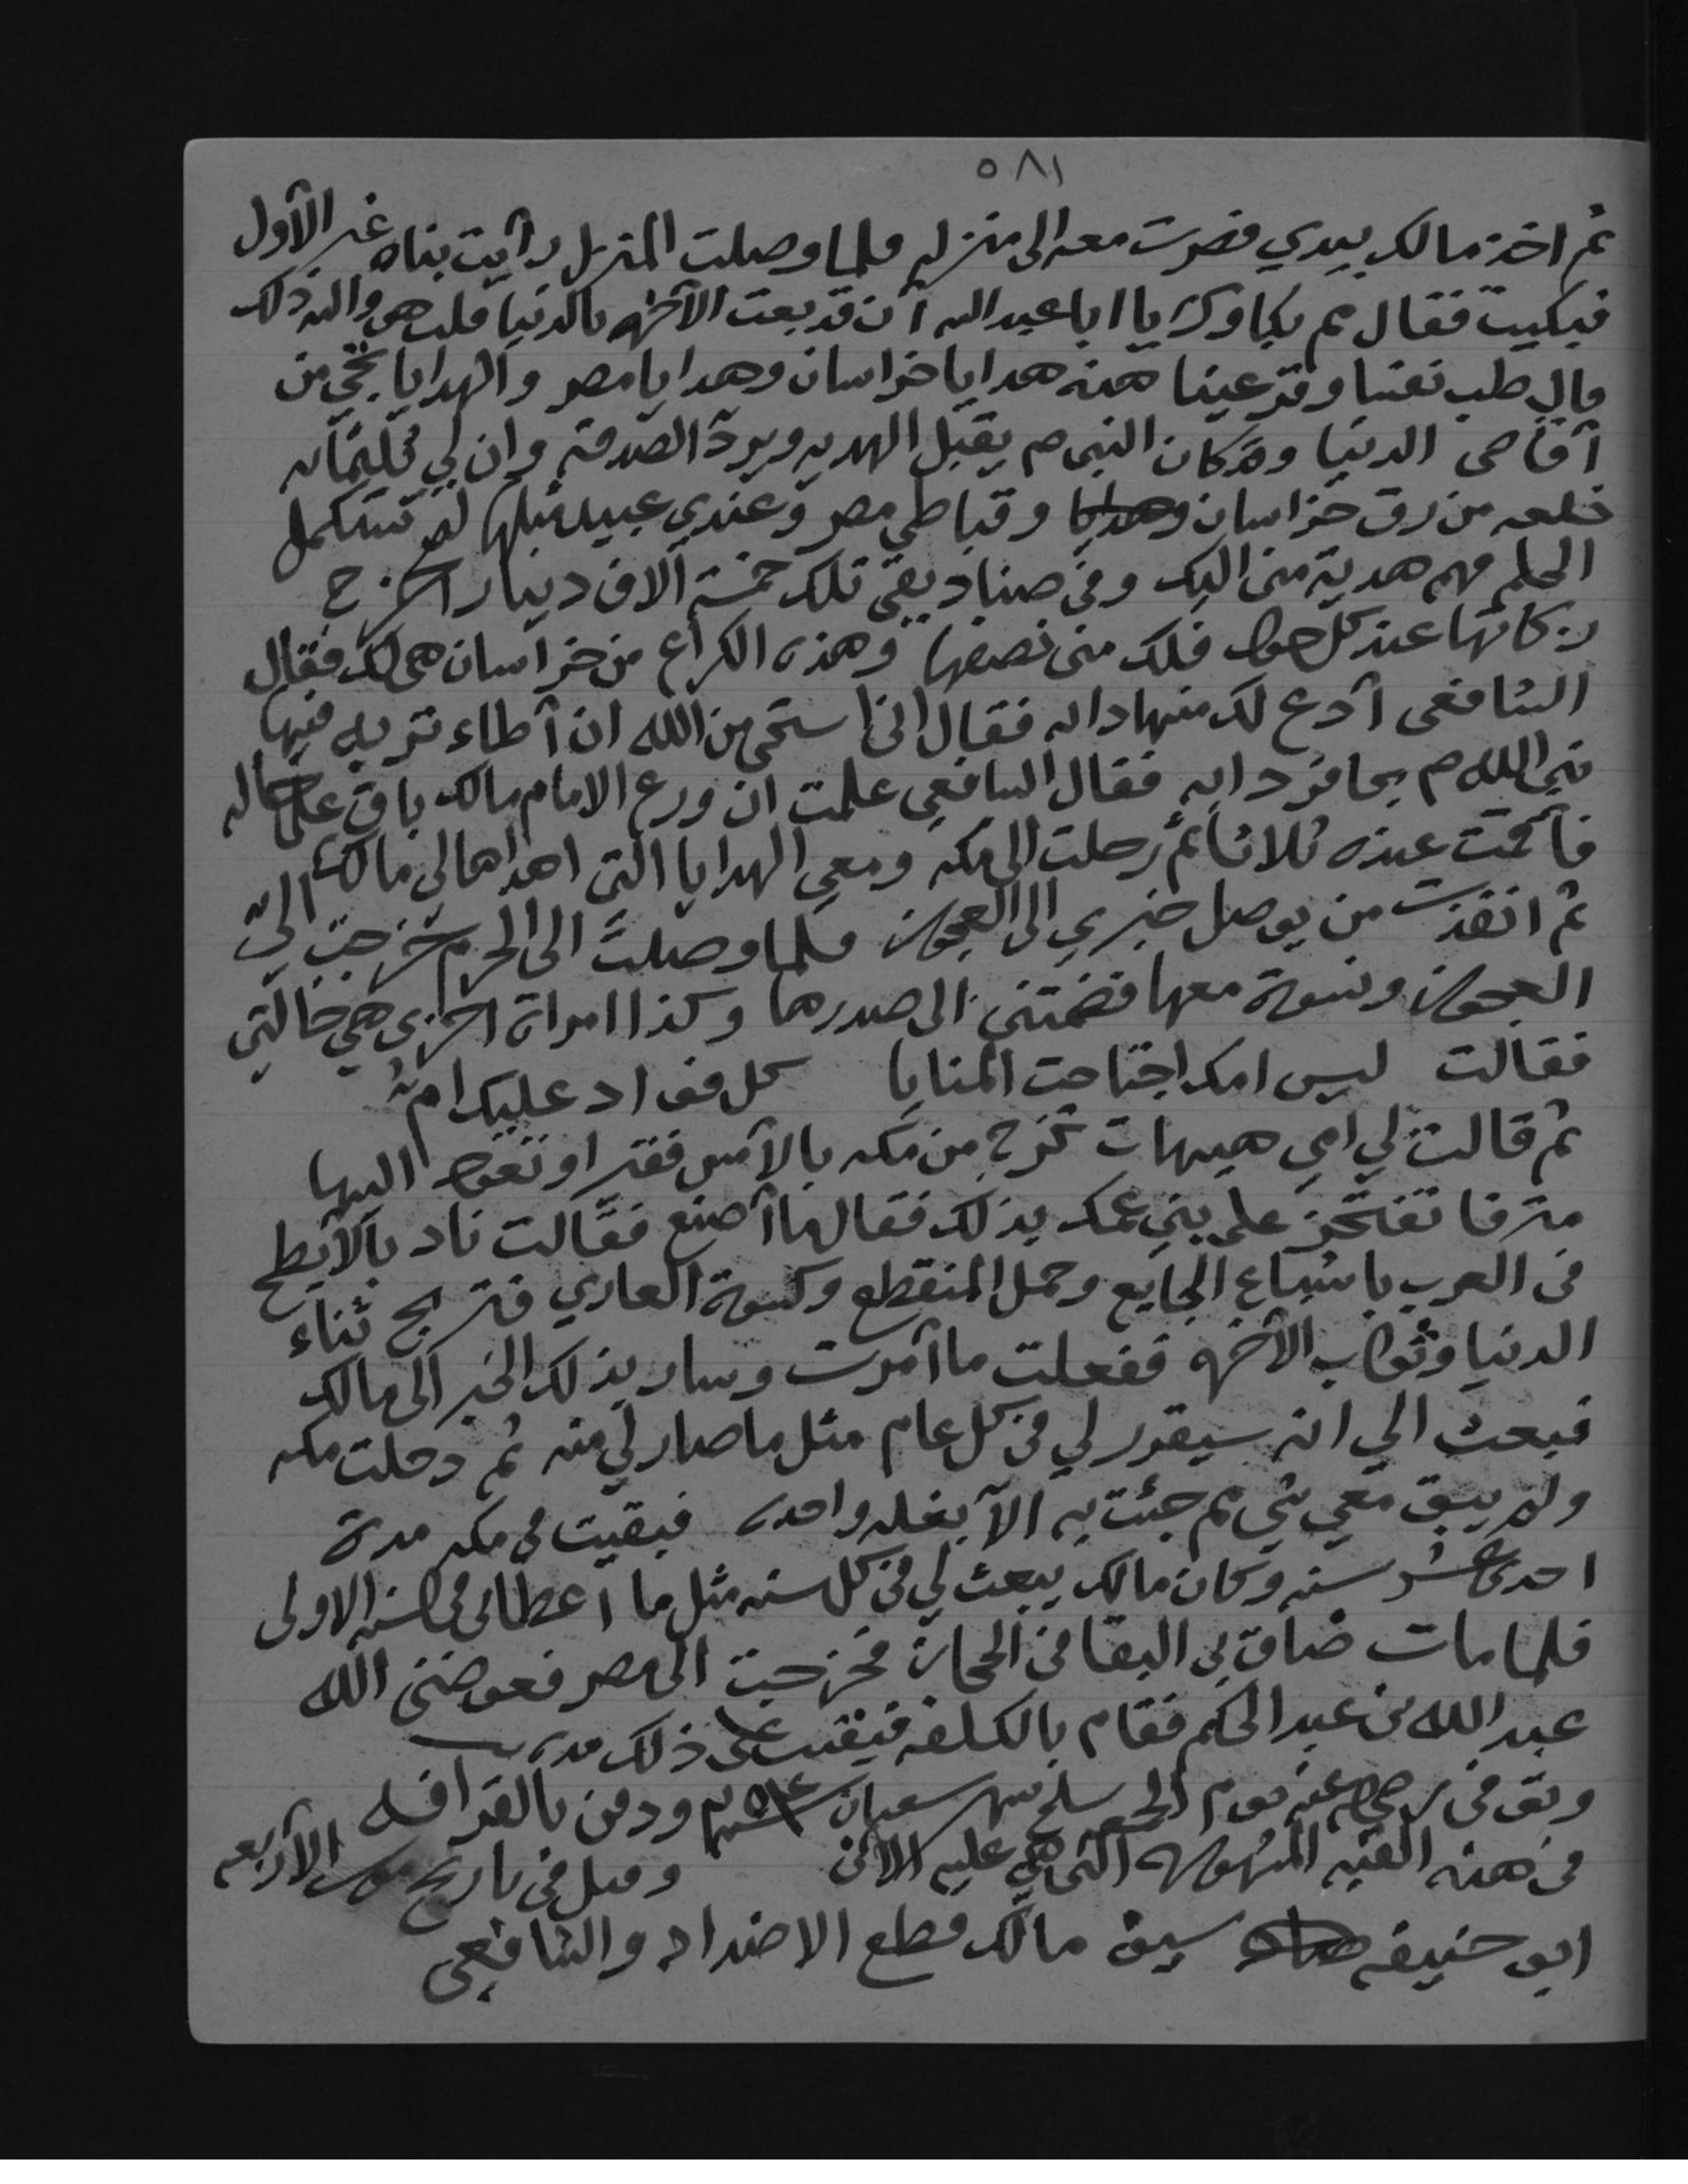 ٥٨١
ثم اخذ مالك بيدي فصرت معه الى منزله فلما وصلت المنزل رأيت بناه غير الأول
فبكيت فقال مم بكاوك يا ابا عبد الله أن قد بعت الآخره بالدنيا قلت هو والله ذلك
قال طب نفسا وقر عينا هذه هدايا خراسان وهدايا مصر والهدايا تجي من
أقاصى الدنيا وقد كان النبي م يقبل الهديه ويرد الصدقة وان لي ثلثمائه
خلعه من رق خراسان وقباطي مصر وعندي عبيد مثلها لم تستكمل
الحلم فهم هدية منى اليك وفى صناديقي تلك خمسة آلاف دينار اخرج
زكاتها عند كل حول فلك منى نصفها وهذه الكراع من خراسان هى لك فقال
الشافعى أدع لك منها دابه فقال انى استحى من الله ان أطاء تربه فيها
نبي الله م بحافر دابه فقال الشافعي علمت ان ورع الامام مالك باق على حاله
فأقمت عنده ثلاثا ثم رحلت الى مكه ومعي الهدايا التى اهداها لى مالك
ثم انفذت من يوصل خبري الى العجوز فلما وصلت الى الحرم خرجت الي
العجوز ونسوة معها فضمتنى الى صدرها وكذا امراة اخرى هي خالتي
فقالت ليس امك اجتاحت المنايا كل فواد عليك ام
ثم قالت لي امي هيهات تخرج من مكه بالأمس فقيرا وتعود اليها
مترفا تفتخر على بني عمك بذلك فقال ما أصنع فقالت ناد بالأبطح
فى العرب باشباع الجايع وحمل المنقطع وكسوة العاري فتربح ثناء
الدنيا وثواب الآخره ففعلت ما أمرت وسار بذلك الخبر الى مالك
فبعث الي انه سيقرر لي فى كل عام مثل ما صار لي منه ثم دخلت مكه
ولم يبق معي شي مم جئت به الا بغله واحده فبقيت فى مكه مدة
احدى عشر سنه وكان مالك يبعث لي فى كل سنه مثل ما اعطانى فى السنه الاولى
فلما مات ضاق بى البقا فى الحجاز فخرجت الى مصر فعوضنى الله
عبد الله بن عبد الحكم فقام بالكلفه فبقيت على ذلك مده
وتوفى رضي الله عنه يوم الجمعه سلخ شهر شعبان ودفن بالقرافه
فى هذه القبه المشهوره التى هي عليه الان وقيل فى تاريخ موت الأربعه
ابو حنيفه سيف مالك قطع الاضداد والشافعي